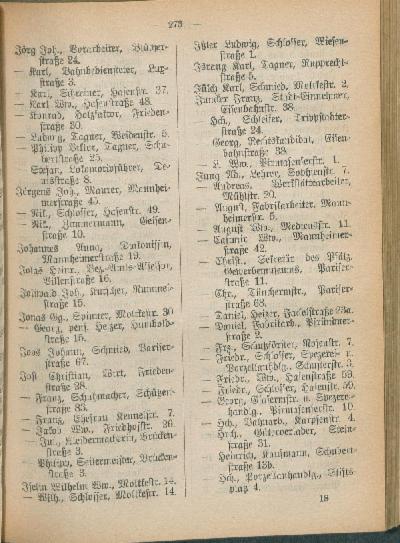 273 —
Jörg Joh., Vorarbeiter, Blücher-
straße 24.
— Karl, Bahnbediensteter, Lux-
straße 3.
— Karl, Schreiner, Hasenstr. 37.
— Karl Ww., Hasenstraße 48.
— Konrad, Holzhacker, Frieden-
straße 30.
— Ludwig, Tagner, Weidenstr. 5.
— Philipp, Tagner, Schu-
bertstraße 25.
— Stefan, Lokomotivführer, De-
misstraße 8.
Jörgens Joh., Maurer, Mannhei-
merstraße 45.
— Nik., Schlosser, Hasenstr. 49.
— Nik., Zimmermann, Geisen-
straße 10.
Johannes Anna, Diakonissin,
Mannheimerstraße 19.
Jolas Heinr., Bez.-Amts-Assessor,
Villenstraße 16.
Joh., Kutscher, Rummel-
straße 15.
Jonas Gg., Spinner, Moltkestr. 30
— Georg, pens. Heizer, Humbold-
straße 15.
Joos Johann, Schmied, Pariser-
straße 67.
Jost Christian, Wirt, Frieden-
straße 38.
— Franz, Schuhmacher, Schützen-
straße 35.
— Franz, Ehefrau Kennelstr. 7.
— Jakob Ww., Friedhofstr. 26.
— Kleidermacherin, Brücken-
straße 3.
— Philipp, Seilermeister, Brücken-
straße 3.
Iselin Wilhelm Ww., Moltkestr. 14.
— Wilh., Schlosser, Moltkestr. 14.
Ißler Ludwig, Schlosser, Wiesen-
straße 1.
Karl, Tagner, Rupprecht-
straße 5.
Jülch Karl, Schmied, Moltkestr. 2.
Juncker Franz, Stadt-Einnehmer,
Eisenbahnstr. 38.
— Hch., Schleifer,
straße 24.
— Georg, Rechtskandidat, Eisen-
bahnstraße 38.
— L. Ww., Pirmasenserstr. 1.
Jung Ad., Lehrer, Sophienstr. 7.
— Andreas, Werkstattarbeiter,
Mühlstr. 20.
— August, Fabrikarbeiter, Mann-
heimerstr. 5.
— August Ww., Medicusstr. 11.
— Casimir Ww., Mannheimer-
straße 42.
— Christ., Sekretär des Pfälz.
Gewerbemuseums, Pariser-
straße 11.
— Chr., Tünchermstr., Pariser-
straße 68.
— Daniel, Heizer, Fackelstraße 23a.
— Daniel, Fabrikarb., Pirminser-
straße 2.
— Frz., Schutzförster, Rosenstr. 7.
— Friedr., Schlosser, Spezerei- u.
Porzellanhdlg., Schulstr. 5.
— Friedr., Ww., Hasenstraße 59.
— Friedr., Schlosser, Hasenstr. 59.
— Georg, Glasermstr. u. Spezerei-
handlg., Pirmasenserstr. 10.
— Hch., Karpfenstr. 4.
— Hch., Güterverlader, Stein-
straße 31.
— Heinrich, Kaufmann, Schubert-
straße 13b.
— Hch., Porzellanhandlg., Stifts-
platz 4.
18